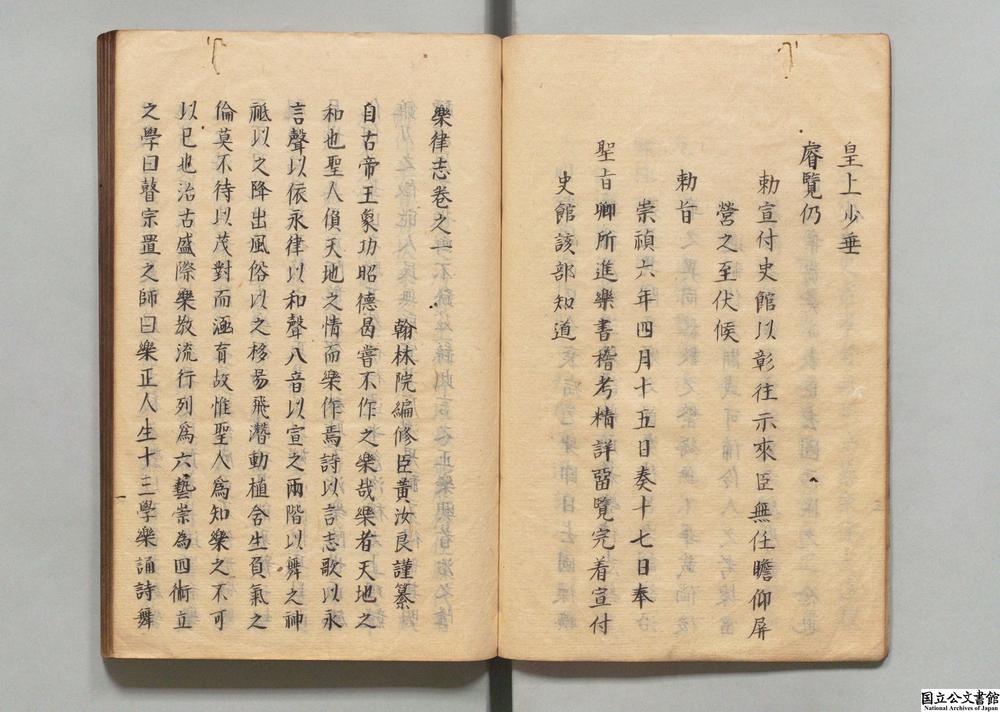 皇上少垂
睿覽仍
勅宣付史館以彰往示來臣無任瞻仰屏
營之至伏候
勅旨
崇禎六年四月十五日奏十七日奉
聖旨卿所進樂書稽考精詳留覽完着宣付
史館該部知道
樂律志卷之一
翰林院編修臣黃汝良謹纂
自古帝王象功昭德曷嘗不作之樂哉樂者天地之
和也聖人傎天地之情而樂作焉詩以言志歌以永
言聲以依永律以和聲八音以宣之兩階以舞之神
祗以之降出風俗以之移易飛潛動植含生負氣之
倫莫不待以茂對而涵育故惟聖人為知樂之不可
以已也治古盛際樂教流行列為六藝崇為四術立
之學曰瞽宗置之師曰樂正人生十三學樂誦詩舞
一
国立公文書館
National Archives of Japan